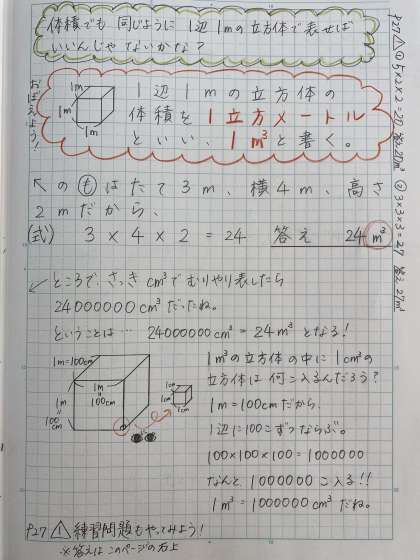 体積でも同じように1辺1mの立方体で表せば
いいんじゃないかな?
おぼえよう!
1m
1m
1m
1辺1mの立方体の
体積を1立方メートル
といい、1m³と書く。
↖のもはたて3m、横4m、高さ
2mだから、
(式) 3×4×2=24 答え 24m³
ところで、さっきcm³でむりやり表したら
24000000cm³だったね。
ということは… 24000000cm³=24m³となる!
1m=100cm
1m
=
100cm
1m
=
100cm
1cm
1cm
1cm
1m³の立方体の中に1cm³の
立方体は何こ入るんだろう?
1m=100cmだから、
1辺に100こずつならぶ。
100×100×100=1000000
なんと、1000000こ入る!!
1m³=1000000cm³だね。
P27 △1 練習問題もやってみよう!
※答えはこのページの右上
P27 △1 ① 5×2×2=20 答え20m³
② 3×3×3=27 答え 27m³